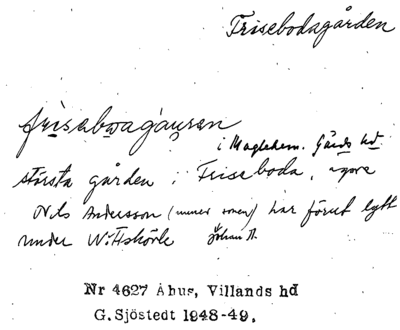 Frisebodagården
frisabwagauren
i Maglehem. Gärds hd
största gården i Friseboda,
Nils Andersson har förut lytt
under Wittskövle Johan A.
Nr 4627 Åhus, Villands hd
G. Sjöstedt 1948-49.